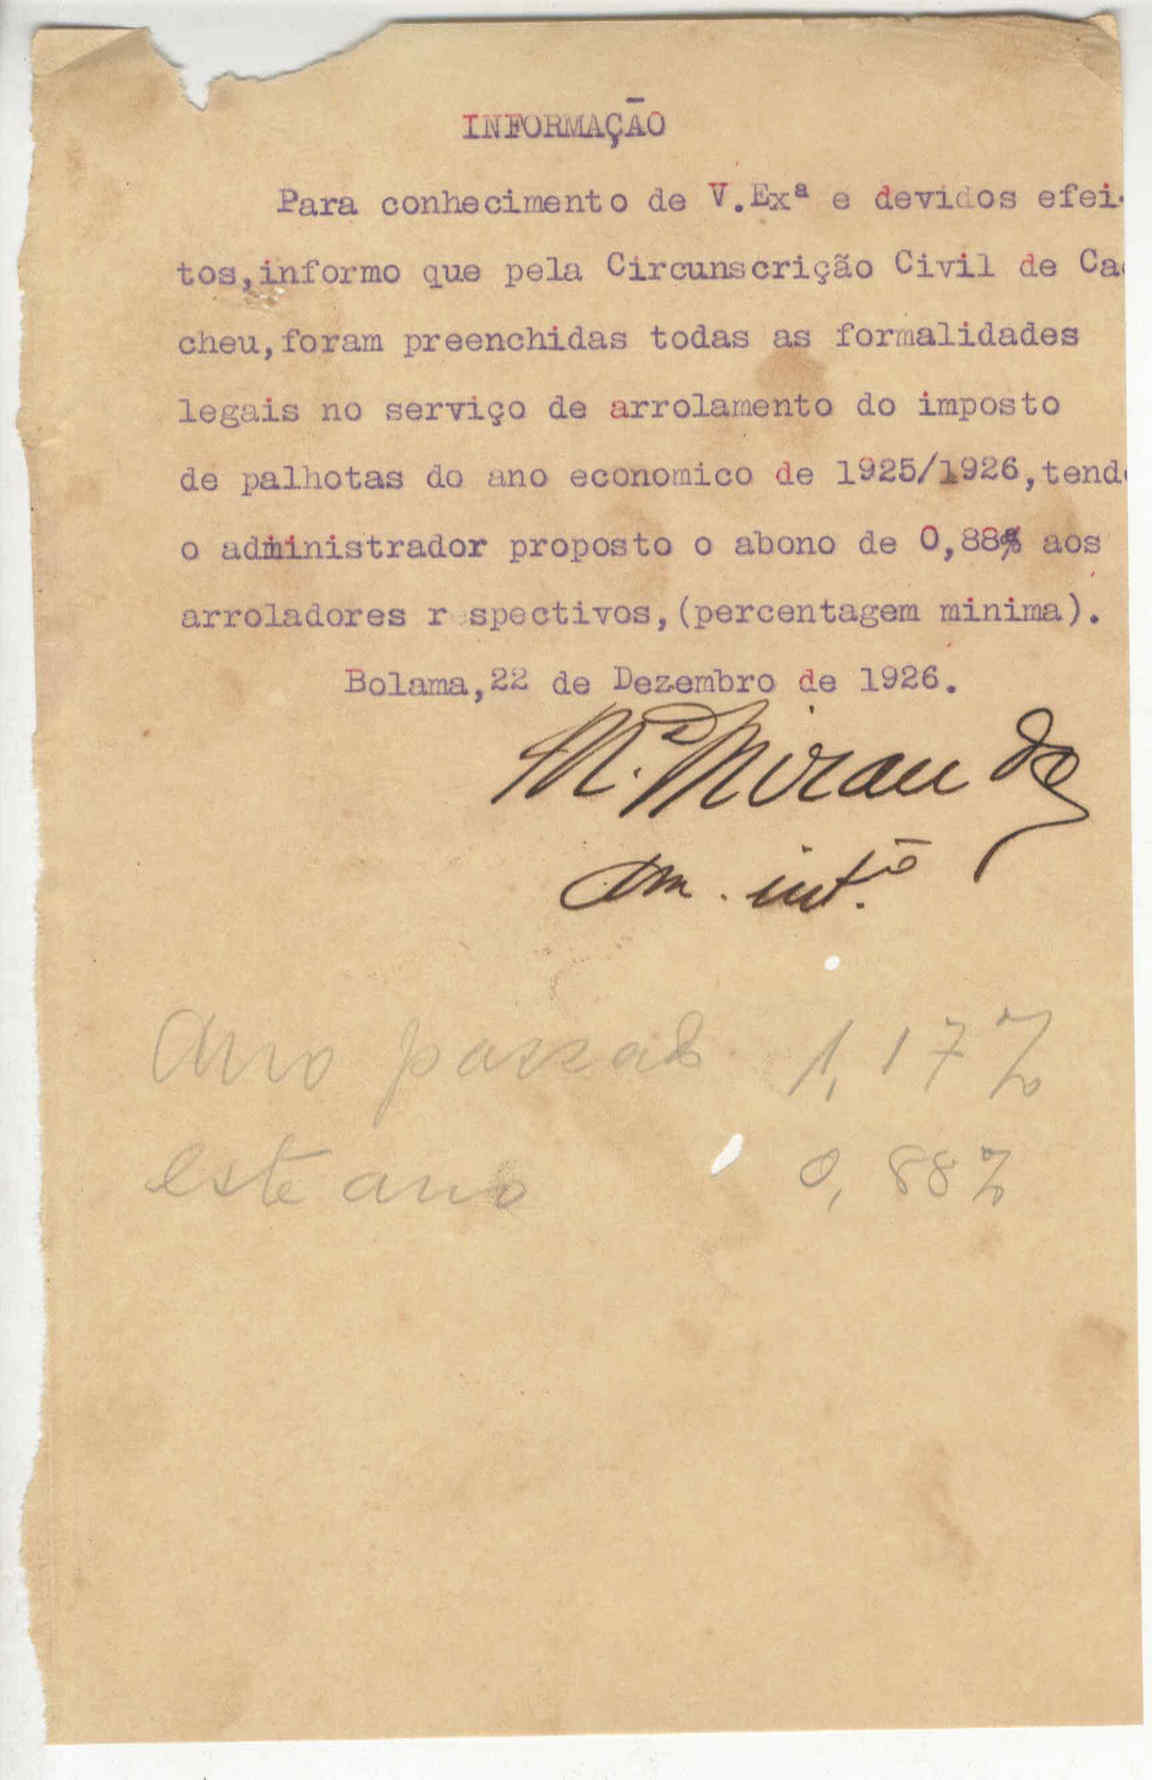 INFORMAÇÃO
Para conhecimento de V.Exª e devidos efei-
tos,informo que pela Circunscrição Civil de Ca
cheu,foram preenchidas todas as formalidades
legais no serviço de arrolamento do imposto
de palhotas do ano economico de 1925/1926,tendo
o administrador proposto o abono de 0,88% aos
arroladores r spectivos,(percentagem minima).
Bolama,22 de Dezembro de 1926.
M. Miranda
int.º
Ano passado 1,17%
este ano 0,88%